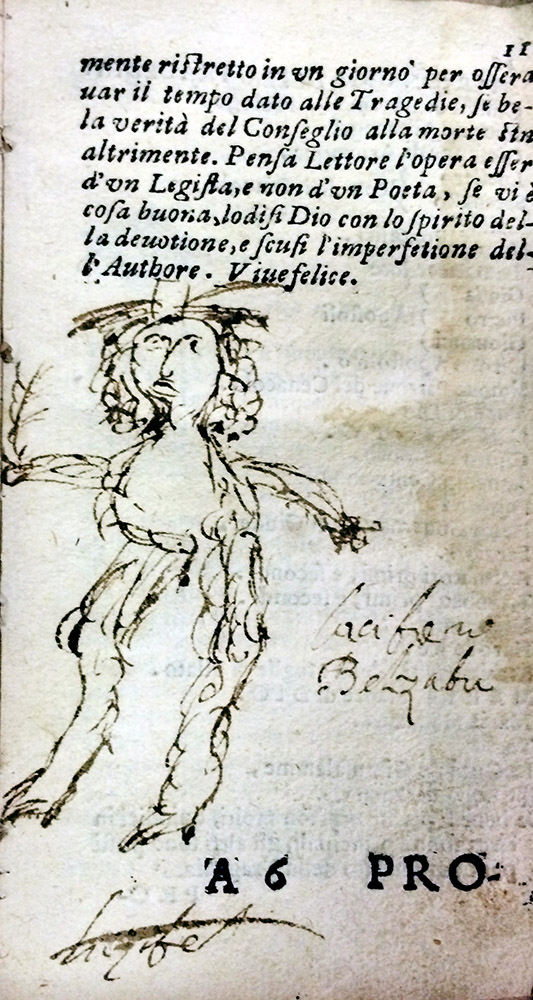 11
mente riſtretto in vn giorno per oſſera
uar il tempo dato alle Tragedie, ſe be-
la verità del Conſeglio alla morte ſtn
altrimente. Penſa Lettore l'opera eſſer
d'vn Legiſta, e non d'vn Poeta, ſe vi è
coſa buona, lodiſi Dio con lo ſpirito del-
la deuotione, e ſcuſi l'imperfetione del-
l'Authore. Viue felice.
Belzabu
A 6 PRO-